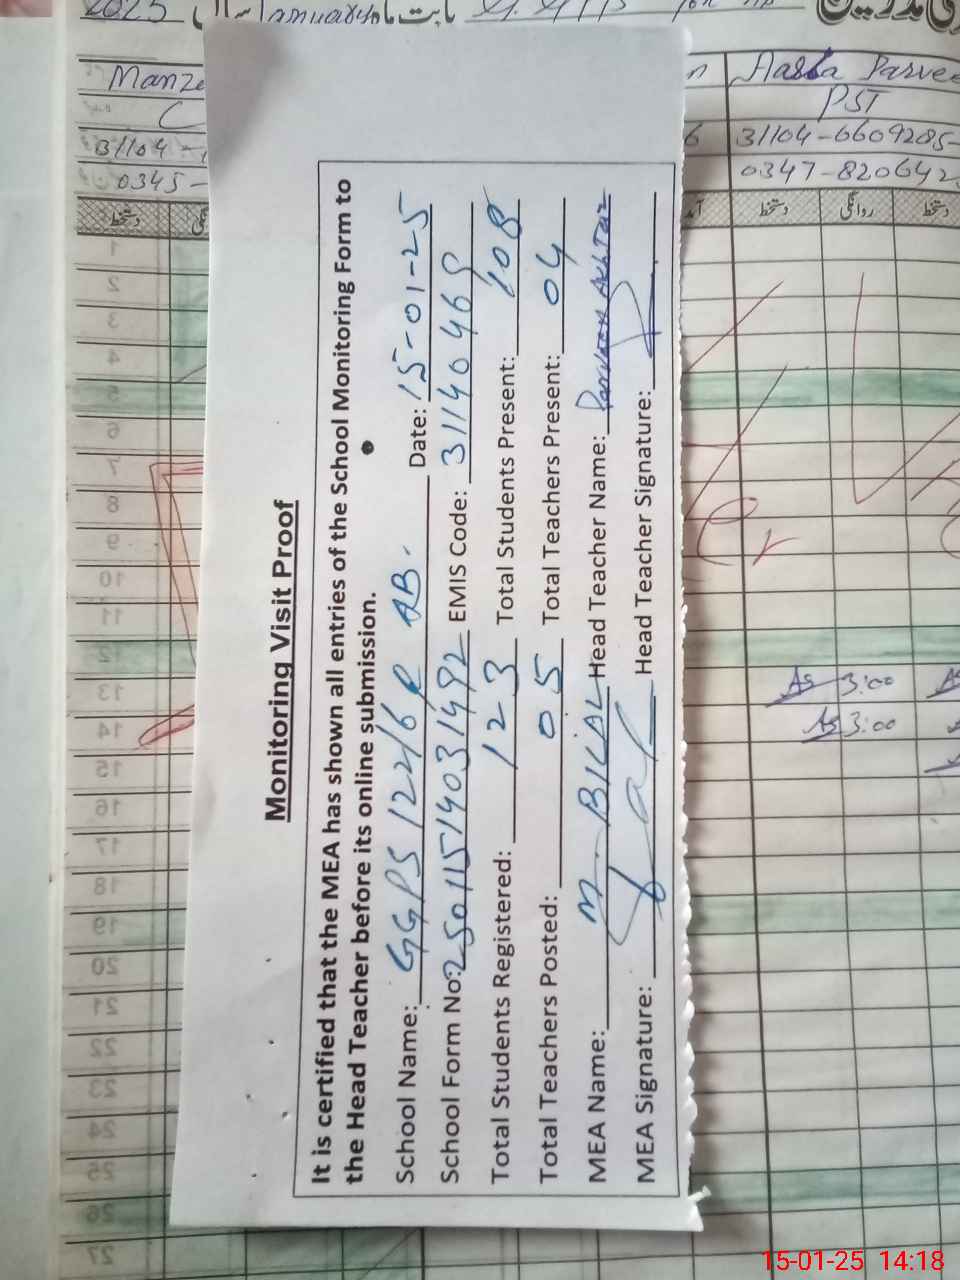 2025 January
Manze
Aasia Parvee
PST
31104-
6 31104-6609285-
0345-
0347-820642
دستخط
دستخط روانگی دستخط
Monitoring Visit Proof
It is certified that the MEA has shown all entries of the School Monitoring Form to
the Head Teacher before its online submission.
School Name: GGPS 122/6R AB. Date: 15-01-25
School Form No: 2501151403 1492 EMIS Code: 31140469
Total Students Registered: 123 Total Students Present: 108
Total Teachers Posted: 05 Total Teachers Present: 04
MEA Name: M. BILAL Head Teacher Name: Parveen Akhtar
MEA Signature: Head Teacher Signature:
1
2
3
4
5
6
7
8
9
10
11
12
13 3:00
14 3:00
15
16
17
18
19
20
21
22
23
24
25
26
27
15-01-25 14:18